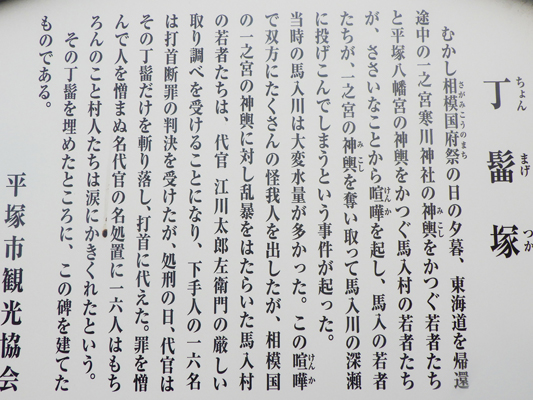 丁髷塚
ちょん まげ つか
むかし相模国府祭の日の夕暮、東海道を帰還
さがみこうのまち
途中の一之宮寒川神社の神輿をかつぐ若者たち
みこし
と平塚八幡宮の神輿をかつぐ馬入村の若者たち
が、ささいなことから喧嘩を起し、馬入の若者
けんか
たちが、一之宮の神輿を奪い取って馬入川の深瀬
みこし
に投げこんでしまうという事件が起った。
当時の馬入川は大変水量が多かった。この喧嘩
けんか
で双方にたくさんの怪我人を出したが、相模国
の一之宮の神輿に対し乱暴をはたらいた馬入村
の若者たちは、代官 江川太郎左衛門の厳しい
取り調べを受けることになり、下手人の一六名
は打首断罪の判決を受けたが、処刑の日、代官は
その丁髷だけを斬り落し、打首に代えた。罪を憎
んで人を憎まぬ名代官の名処置に一六人はもち
ろんのこと村人たちは涙にかきくれたという。
その丁髷を埋めたところに、この碑を建てた
ものである。
平塚市観光協会